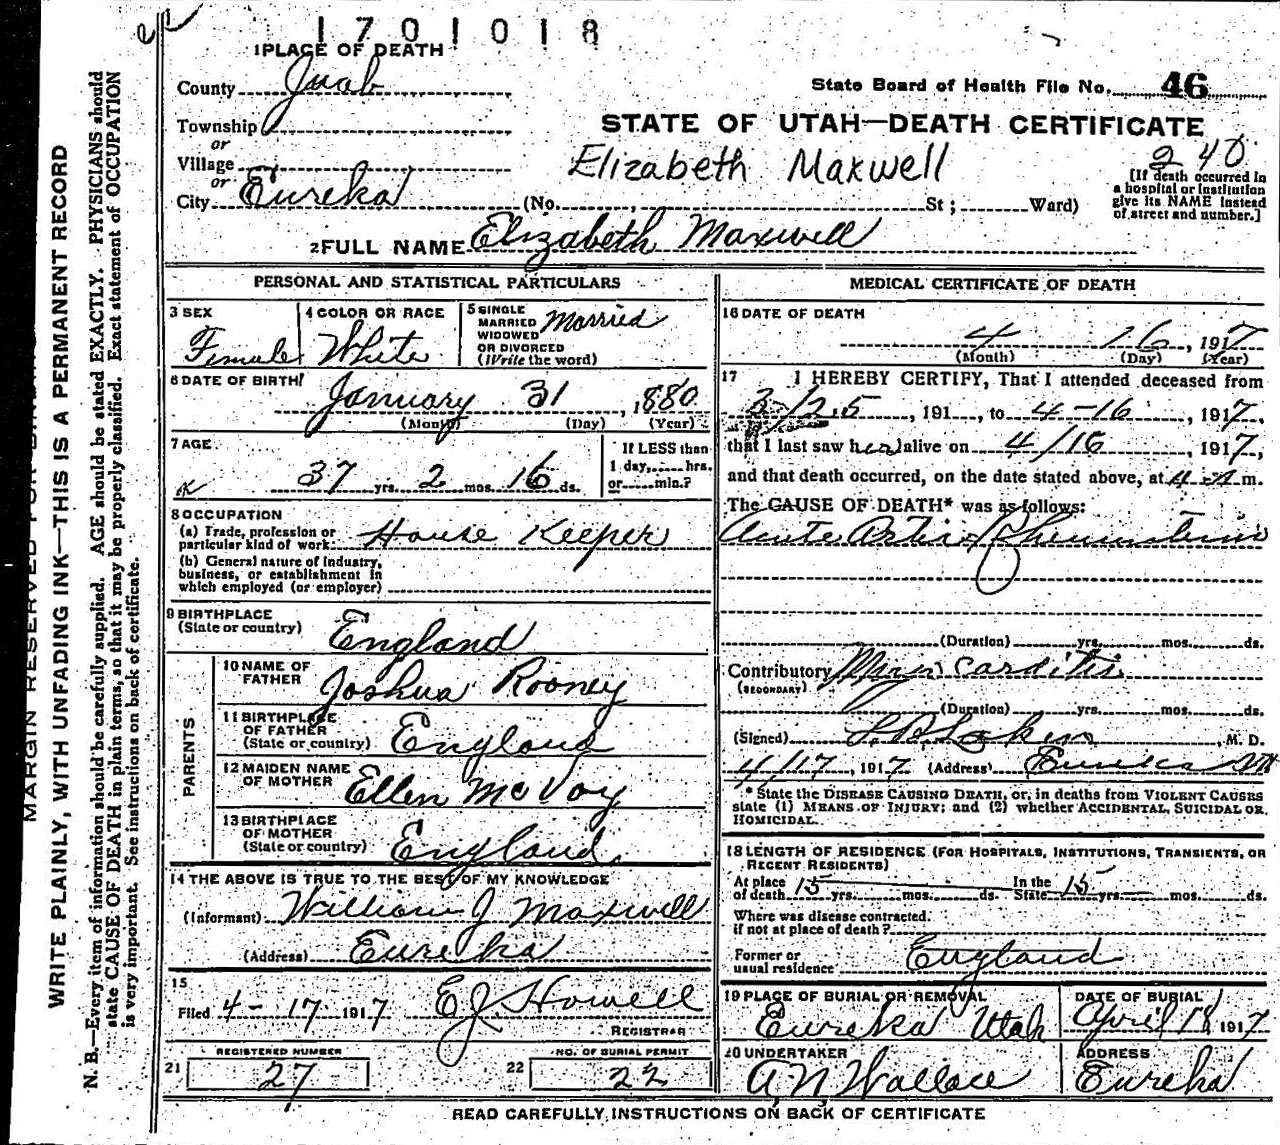 1701018
1 PLACE OF DEATH
County Juab
State Board of Health File No. 46
Township
or
STATE OF UTAH—DEATH CERTIFICATE
Village
or
Elizabeth Maxwell
240
[If death occurred in
a hospital or institution
give its NAME instead
of street and number.]
City Eureka (No. , St; Ward)
2 FULL NAME Elizabeth Maxwell
PERSONAL AND STATISTICAL PARTICULARS
3 SEX
Female
4 COLOR OR RACE
White
5 SINGLE
MARRIED
WIDOWED
OR DIVORCED
(Write the word)
Married
6 DATE OF BIRTH
January 31, 1880
(Month) (Day) (Year)
7 AGE
37 yrs. 2 mos. 16 ds.
If LESS than
1 day, hrs.
or min.?
8 OCCUPATION
(a) Trade, profession or
particular kind of work: House Keeper
(b) General nature of industry,
business, or establishment in
which employed (or employer)
9 BIRTHPLACE
(State or country) England
PARENTS
10 NAME OF
FATHER Joshua Rooney
11 BIRTHPLACE
OF FATHER
(State or country) England
12 MAIDEN NAME
OF MOTHER Ellen McVoy
13 BIRTHPLACE
OF MOTHER
(State or country) England
14 THE ABOVE IS TRUE TO THE BEST OF MY KNOWLEDGE
(Informant) William J Maxwell
(Address) Eureka
15
Filed 4-17 1917 E J Howell
REGISTRAR
21 REGISTERED NUMBER
27
22 NO. OF BURIAL PERMIT
22
MEDICAL CERTIFICATE OF DEATH
16 DATE OF DEATH
4 16, 1917
(Month) (Day) (Year)
17 I HEREBY CERTIFY, That I attended deceased from
3/25, 191 , to 4-16, 1917,
that I last saw her alive on 4/16, 1917,
and that death occurred, on the date stated above, at 4 m.
The CAUSE OF DEATH* was as follows:
Acute Rheumatism
(Duration) yrs. mos. ds.
Contributory Myocarditis
(SECONDARY)
(Duration) yrs. mos. ds.
(Signed) , M. D.
4/17, 1917 (Address) Eureka
* State the DISEASE CAUSING DEATH, or, in deaths from VIOLENT CAUSES
state (1) MEANS OF INJURY; and (2) whether ACCIDENTAL, SUICIDAL OR
HOMICIDAL.
18 LENGTH OF RESIDENCE (FOR HOSPITALS, INSTITUTIONS, TRANSIENTS, OR
RECENT RESIDENTS)
At place
of death 15 yrs. mos. ds.
In the
State 15 yrs. mos. ds.
Where was disease contracted.
if not at place of death?
Former or
usual residence England
19 PLACE OF BURIAL OR REMOVAL
Eureka Utah
DATE OF BURIAL
April 18, 1917
20 UNDERTAKER
A. N. Wallace
ADDRESS
Eureka
READ CAREFULLY INSTRUCTIONS ON BACK OF CERTIFICATE
MARGIN RESERVED FOR
WRITE PLAINLY, WITH UNFADING INK—THIS IS A PERMANENT RECORD
N. B.—Every item of information should be carefully supplied. AGE should be stated EXACTLY. PHYSICIANS should
state CAUSE OF DEATH in plain terms, so that it may be properly classified. Exact statement of OCCUPATION
is very important. See instructions on back of certificate.